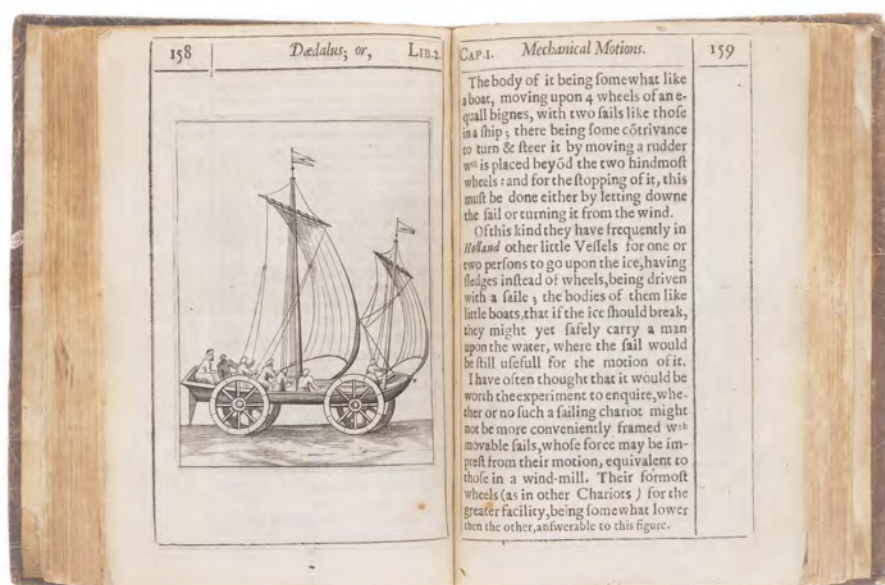 158
Dædalus; or,
LIB.2.
CAP.I.
Mechanical Motions.
159
The body of it being ſomewhat like
a boat, moving upon 4 wheels of an e-
quall bignes, with two ſails like thoſe
in a ſhip; there being ſome cõtrivance
to turn & ſteer it by moving a rudder
wᶜʰ is placed beyõd the two hindmoſt
wheels: and for the ſtopping of it, this
muſt be done either by letting downe
the ſail or turning it from the wind.
Of this kind they have frequently in
Holland other little Veſſels for one or
two perſons to go upon the ice, having
ſledges inſtead of wheels, being driven
with a ſaile; the bodies of them like
little boats, that if the ice ſhould break,
they might yet ſafely carry a man
upon the water, where the ſail would
be ſtill uſefull for the motion of it.
I have often thought that it would be
worth the experiment to enquire, whe-
ther or no ſuch a ſailing chariot might
not be more conveniently framed wᵗʰ
movable ſails, whoſe force may be im-
preſt from their motion, equivalent to
thoſe in a wind-mill. Their formoſt
wheels (as in other Chariots) for the
greater facility, being ſomewhat lower
then the other, anſwerable to this figure.